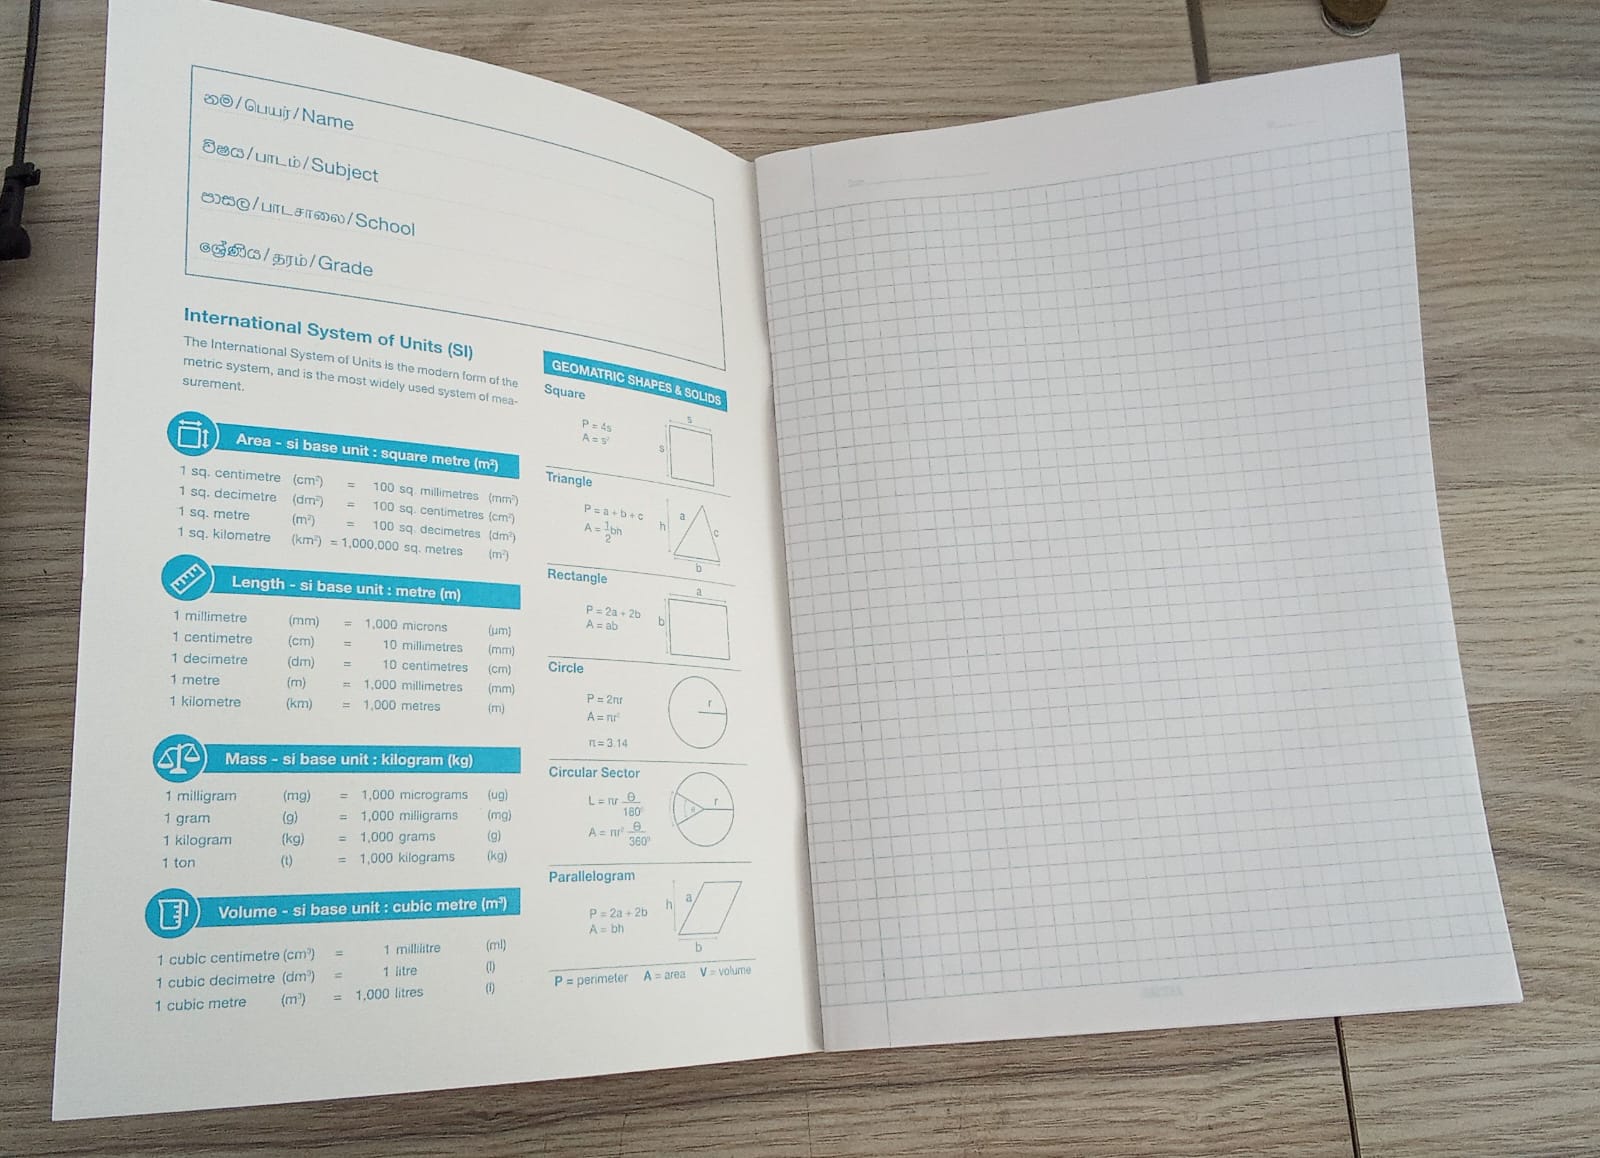 නම/பெயர்/Name
විෂය/பாடம்/Subject
පාසල/பாடசாலை/School
ශ්‍රේණිය/தரம்/Grade
International System of Units (SI)
The International System of Units is the modern form of the
metric system, and is the most widely used system of mea-
surement.
Area - si base unit : square metre (m²)
1 sq. centimetre (cm²) = 100 sq. millimetres (mm²)
1 sq. decimetre (dm²) = 100 sq. centimetres (cm²)
1 sq. metre (m²) = 100 sq. decimetres (dm²)
1 sq. kilometre (km²) = 1,000,000 sq. metres (m²)
Length - si base unit : metre (m)
1 millimetre (mm) = 1,000 microns (µm)
1 centimetre (cm) = 10 millimetres (mm)
1 decimetre (dm) = 10 centimetres (cm)
1 metre (m) = 1,000 millimetres (mm)
1 kilometre (km) = 1,000 metres (m)
Mass - si base unit : kilogram (kg)
1 milligram (mg) = 1,000 micrograms (ug)
1 gram (g) = 1,000 milligrams (mg)
1 kilogram (kg) = 1,000 grams (g)
1 ton (t) = 1,000 kilograms (kg)
Volume - si base unit : cubic metre (m³)
1 cubic centimetre (cm³) = 1 millilitre (ml)
1 cubic decimetre (dm³) = 1 litre (l)
1 cubic metre (m³) = 1,000 litres (l)
GEOMATRIC SHAPES & SOLIDS
Square
P = 4s
A = s²
s
s
Triangle
P = a + b + c
A = 1/2 bh
h a c
b
Rectangle
P = 2a + 2b
A = ab
a
b
Circle
P = 2πr
A = πr²
π = 3.14
r
Circular Sector
L = πr θ/180°
A = πr² θ/360°
θ r
Parallelogram
P = 2a + 2b
A = bh
h a
b
P = perimeter A = area V = volume